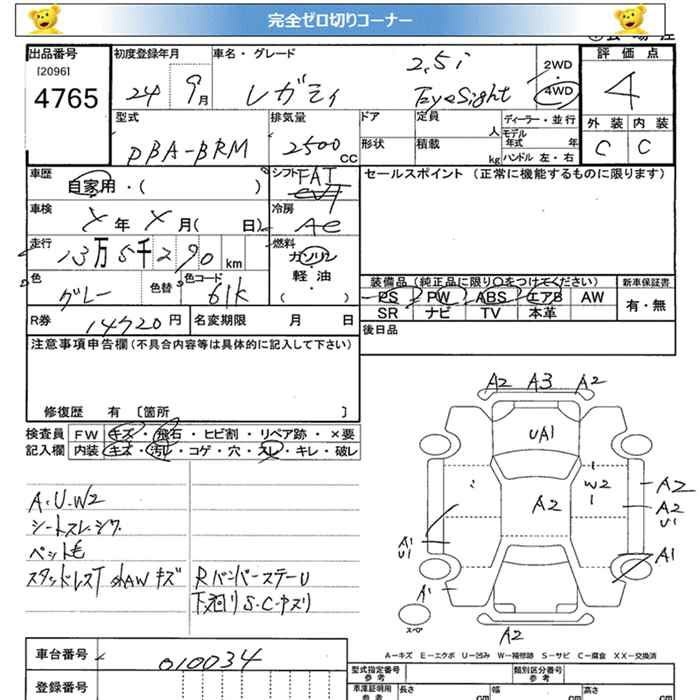 完全ゼロ切りコーナー
出品番号
[2096]
4765
初度登録年月
24 9月
車名・グレード
レガシィ
2.5i
EyeSight
2WD
4WD
評価点
4
外装 内装
C C
型式
DBA-BRM
排気量
2500 cc
ドア
形状
定員 人
積載 kg
ディーラー・並行
モデル
年式 年
ハンドル 左・右
車歴
自家用・( )
シフト FAT
車検
メ 年 メ 月( 日)
冷房
AC
走行
13万5千290 km
燃料
ガソリン
軽・油
( )
色
グレー
色替
色コード
61K
R券 14720円
名変期限 月 日
セールスポイント (正常に機能するものに限ります)
装備品 (純正品に限り〇をつけてください)
新車保証書
PS PW ABS エアB AW
SR ナビ TV 本革
有・無
後日品
注意事項申告欄(不具合内容等は具体的に記入して下さい)
修復歴 有 〔箇所 〕
検査員
記入欄
FW キズ・飛石・ヒビ割・リペア跡・×要
内装 キズ・汚レ・コゲ・穴・スレ・キレ・破レ
A.U.W2
シートスレ.シワ
ペット毛
スタッドレスT 外AW キズ
RバンパーステーU
下廻りS.C.キズリ
A2 A3 A2
UA1
A2
W2
A2
A2
U1
A1
U1
A1
A1
A2
スペア
A－キズ E－エクボ U－凹み W－補修跡 S－サビ C－腐食 XX－交換済
車台番号
010034
登録番号
型式指定番号
参考
類別区分番号
参考
車庫証明用
参考
長さ cm
幅 cm
高さ cm